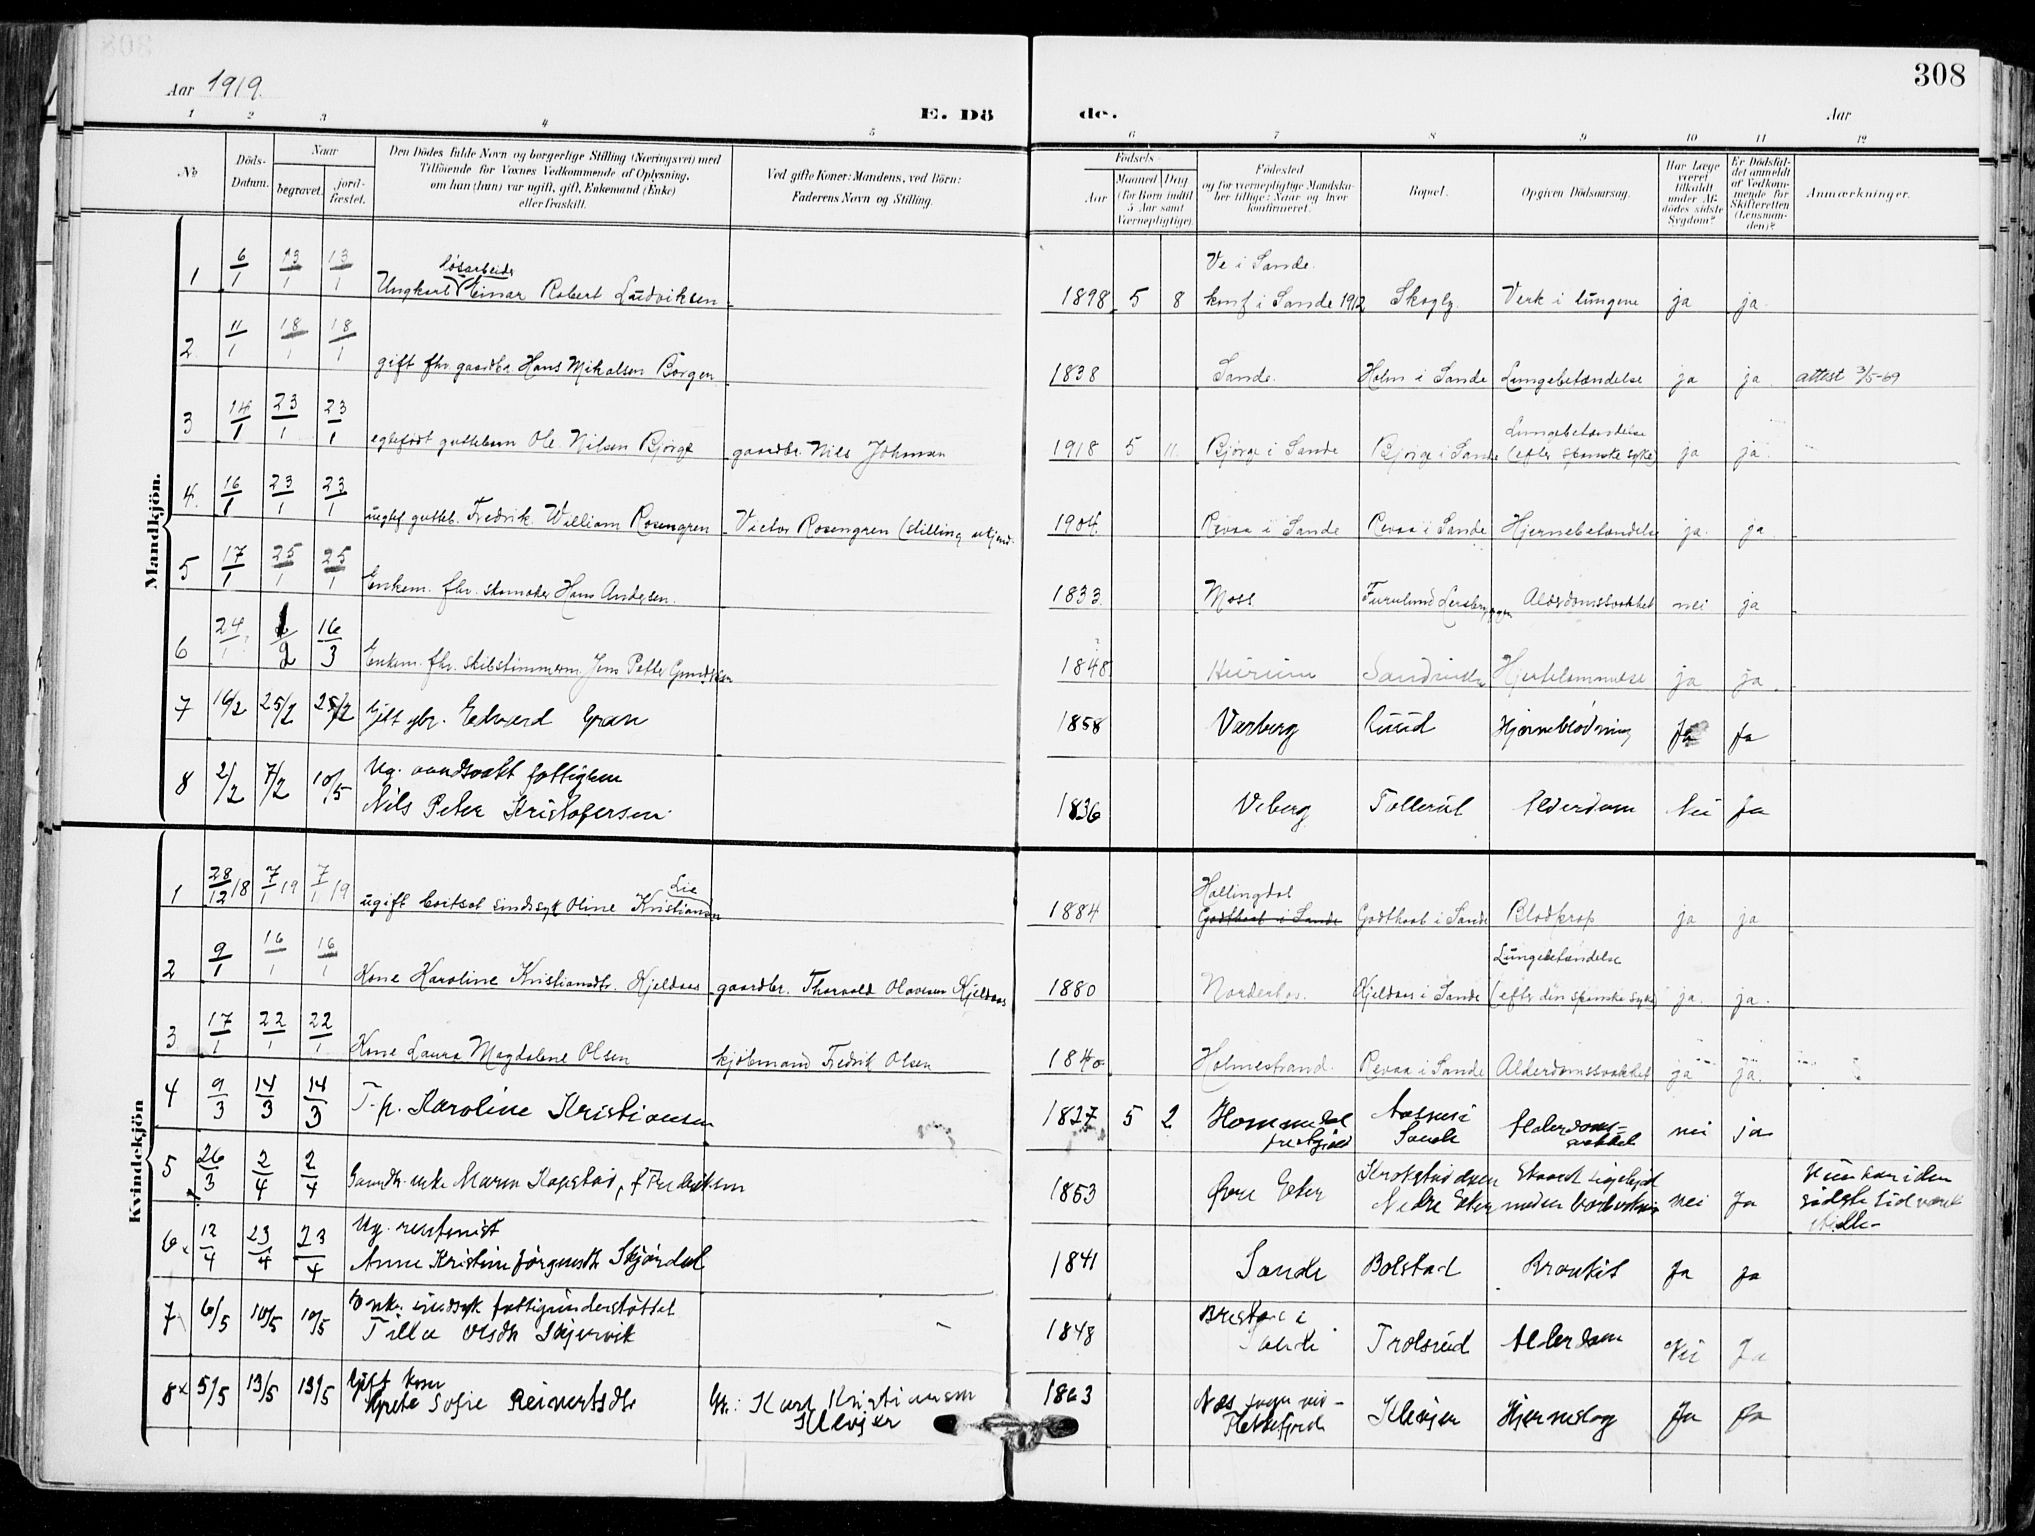 308
Aar 1919.
E. Dö de.
Aar
1 2 3 4 5 6 7 8 9 10 11 12
No
Döds-Datum.
Naar
begravet.
jord-fæstet.
Den Dödes fulde Navn og borgerlige Stilling (Næringsvei) med
Tilföiende for Voxnes Vedkommende af Oplysning,
om han (hun) var ugift, gift, Enkemand (Enke)
eller fraskilt.
Ved gifte Koner: Mandens, ved Börn:
Faderens Navn og Stilling.
Födsels-
Aar
Maaned Dag
(for Børn indtil
5 Aar samt
Værnepligtige)
Födested
og for værnepligtige Mandska-
ber tillige: Naar og hvor
konfirmeret.
Bopæl.
Opgiven Dödsaarsag.
Har Læge
været
tilkaldt
under Af-
dödes sidste
Sygdom?
Er Dödsfal-
det anmeldt
af Vedkom-
mende for
Skifteretten
(Lensman-
den)?
Anmærkninger.
Mandkjön.
1 6/1 13/1 13/1 Ungkarl løsarbeider Einar Robert Ludviksen 1898 5 8 Ve i Sande. konf i Sande 1912 Skogly. Verk i lungene ja ja
2. 11/1 18/1 18/1 gift fhv. gaardbr Hans Mikalsen Borgen 1838 Sande. Holm i Sande Lungebetændelse ja ja attest 3/5-69
3 14/1 23/1 23/1 egtefødt guttebarn Ole Nilsen Bjørge gaardbr. Nils Johnsen 1918 5 11. Bjørge i Sande Bjørge i Sande Lungebetændelse (efter spanske syke) ja ja
4. 16/1 23/1 23/1 uegtef gutteb. Fredrik William Rosengren Victor Rosengren (stilling ukjend. 1904 Revaa i Sande Revaa i Sande Hjernebetændelse ja. ja.
5 17/1 25/1 25/1 Enkem. fhv. skomaker Hans Andersen. 1833 Moss Furulund Alderdomssvakhet nei ja
6 24/1 1/2 16/3 Enkem. fhv. skibstimmerm Jens Petter 1848 Hurum Hjertelammelse ja ja
7 16/2 25/2 25/2 Gift gbr. Edvard Gran 1858 Varberg Ruud Hjerneblødning Ja Ja
8 2/2 7/2 10/5 Ug. aandssvakt fattiglem
Nils Peter Kristofersen 1836 Veberg Tollerud Alderdom Nei Ja
Kvindekjön
1 28/12 18 7/1 19 7/1 19 ugift bortsat sindssyk Oline Kristiansen Lie 1884 Hallingdal Godthaab i Sande Godthaab i Sande Blodprop ja ja
2 9/1 16/1 16/1 Kone Karoline Kristiansdtr. Kjeldaas gaardbr. Thorvald Olavesen Kjeldaas 1880 Norderhov. Kjeldaas i Sande Lungebetændelse (efter den spanske syke) ja ja.
3 17/1 22/1 22/1 Kone Laura Magdalene Olsen kjøbmand Fredrik Olsen 1840 Holmestrand. Revaa i Sande Alderdomssvakhet ja ja.
4 9/3 14/3 14/3 T.p. Karoline Kristiansen 1827 5 2 Sande Alderdoms-svakhet nei ja
5 26/3 2/4 2/4 Maren Kopstad, f Fredriksen 1853 Øvre Eker Nedre Eker nei Ja Hun har i den sidste tid været
6 12/4 23/4 23/4 Ug.
Anne Kristine Jørgensdtr Skjørdal 1841 Sande Bolstad Bronkit Ja Ja
7 6/5 10/5 10/5 Enke. sindssyk fattigunderstøttet
Tilla Olsdtr Skjervik 1848 Sande Trolsrud Alderdom Nei Ja
8 5/5 13/5 13/5 Gift kone
Grete Sofie Reinertsdtr Gbr.: Karl Kristiansen
Klevjer 1863 Næs sogn ved Flekkefjord Klevjer Hjerneslag Ja Ja